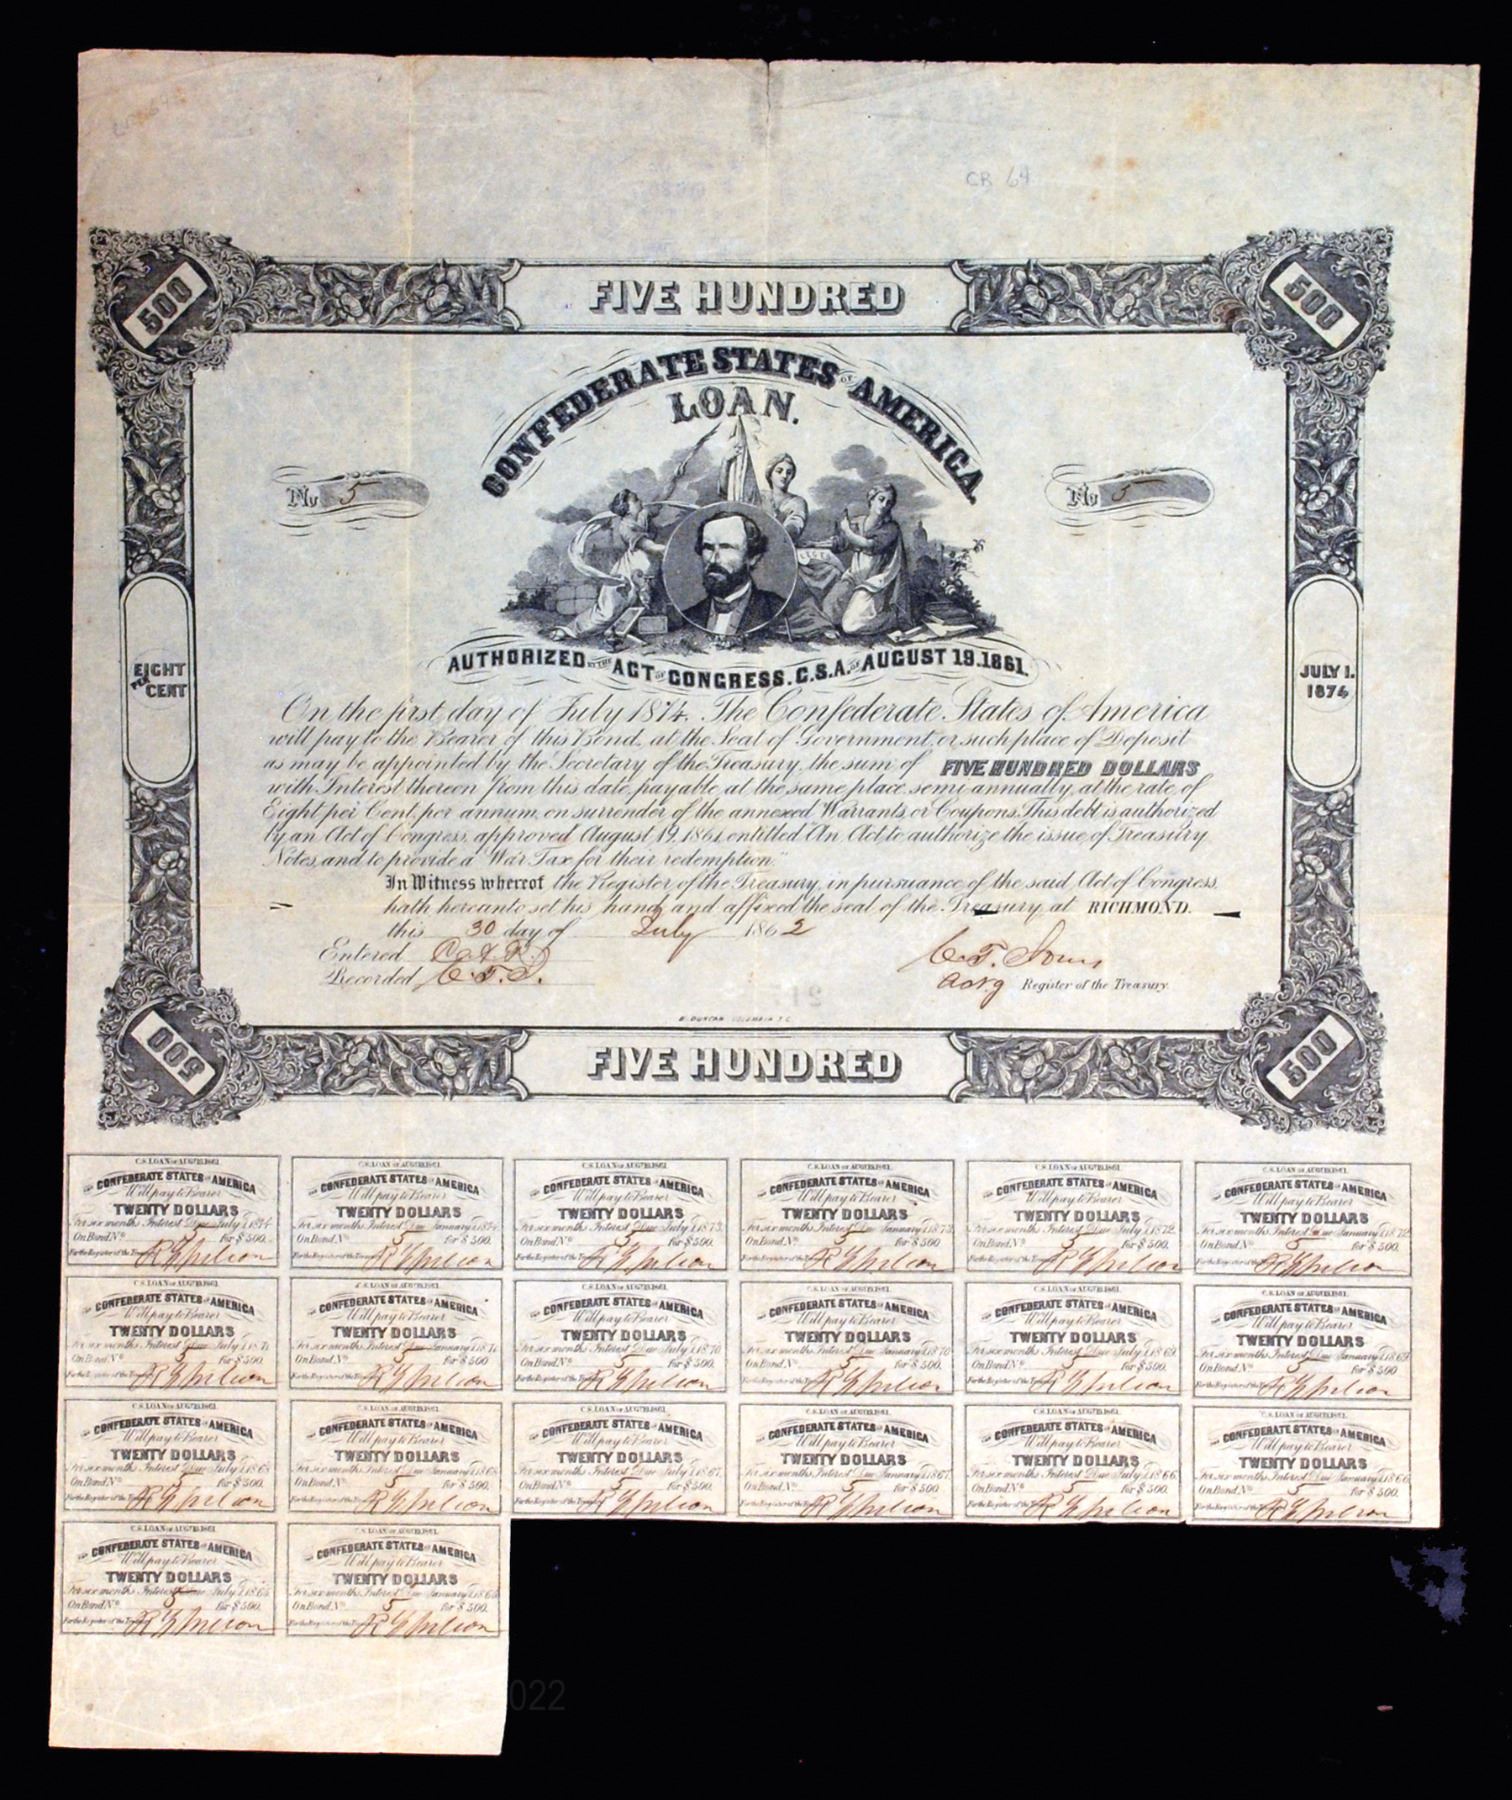 CB 64
FIVE HUNDRED
500
500
CONFEDERATE STATES OF AMERICA.
LOAN.
No 5
No 5
LEGES
EIGHT PER CENT
JULY 1. 1874
AUTHORIZED BY THE ACT OF CONGRESS. C.S.A. OF AUGUST 19. 1861.
On the first day of July 1874. The Confederate States of America
will pay to the Bearer of this Bond, at the Seat of Government, or such place of Deposit
as may be appointed by the Secretary of the Treasury, the sum of FIVE HUNDRED DOLLARS
with Interest thereon from this date, payable at the same place semi-annually, at the rate of
Eight per Cent. per annum, on surrender of the annexed Warrants, or Coupons. This debt is authorized
by an Act of Congress, approved August 19, 1861, entitled "An Act, to authorize the issue of Treasury
Notes, and to provide a War Tax for their redemption."
In Witness whereof the Register of the Treasury, in pursuance of the said Act of Congress,
hath hereunto set his hand and affixed the seal of the Treasury at RICHMOND.
this 30 day of July 1862
Entered
Recorded C.T.J.
C. T. Jones
Actg Register of the Treasury.
B. DUNCAN COLUMBIA S.C.
500
FIVE HUNDRED
500
C.S. LOAN OF AUGT 19. 1861.
THE CONFEDERATE STATES OF AMERICA
Will pay to Bearer
TWENTY DOLLARS
For six months Interest Due July 1, 1874
On Bond No 5 for $500.
For the Register of the Treasury
C.S. LOAN OF AUGT 19. 1861.
THE CONFEDERATE STATES OF AMERICA
Will pay to Bearer
TWENTY DOLLARS
For six months Interest Due January 1, 1874
On Bond No 5 for $500.
For the Register of the Treasury
C.S. LOAN OF AUGT 19. 1861.
THE CONFEDERATE STATES OF AMERICA
Will pay to Bearer
TWENTY DOLLARS
For six months Interest Due July 1, 1873
On Bond No 5 for $500.
For the Register of the Treasury
C.S. LOAN OF AUGT 19. 1861.
THE CONFEDERATE STATES OF AMERICA
Will pay to Bearer
TWENTY DOLLARS
For six months Interest Due January 1, 1873
On Bond No 5 for $500.
For the Register of the Treasury
C.S. LOAN OF AUGT 19. 1861.
THE CONFEDERATE STATES OF AMERICA
Will pay to Bearer
TWENTY DOLLARS
For six months Interest Due July 1, 1872
On Bond No 5 for $500.
For the Register of the Treasury
C.S. LOAN OF AUGT 19. 1861.
THE CONFEDERATE STATES OF AMERICA
Will pay to Bearer
TWENTY DOLLARS
For six months Interest Due January 1, 1872
On Bond No 5 for $500.
For the Register of the Treasury
C.S. LOAN OF AUGT 19. 1861.
THE CONFEDERATE STATES OF AMERICA
Will pay to Bearer
TWENTY DOLLARS
For six months Interest Due July 1, 1871
On Bond No 5 for $500.
For the Register of the Treasury
C.S. LOAN OF AUGT 19. 1861.
THE CONFEDERATE STATES OF AMERICA
Will pay to Bearer
TWENTY DOLLARS
For six months Interest Due January 1, 1871
On Bond No 5 for $500
For the Register of the Treasury
C.S. LOAN OF AUGT 19. 1861.
THE CONFEDERATE STATES OF AMERICA
Will pay to Bearer
TWENTY DOLLARS
For six months Interest Due July 1, 1870
On Bond No 5 for $500.
For the Register of the Treasury
C.S. LOAN OF AUGT 19. 1861.
THE CONFEDERATE STATES OF AMERICA
Will pay to Bearer
TWENTY DOLLARS
For six months Interest Due January 1, 1870
On Bond No 5 for $500.
For the Register of the Treasury
C.S. LOAN OF AUGT 19. 1861.
THE CONFEDERATE STATES OF AMERICA
Will pay to Bearer
TWENTY DOLLARS
For six months Interest Due July 1, 1869
On Bond No 5 for $500.
For the Register of the Treasury
C.S. LOAN OF AUGT 19. 1861.
THE CONFEDERATE STATES OF AMERICA
Will pay to Bearer
TWENTY DOLLARS
For six months Interest Due January 1, 1869
On Bond No 5 for $500.
For the Register of the Treasury
C.S. LOAN OF AUGT 19. 1861.
THE CONFEDERATE STATES OF AMERICA
Will pay to Bearer
TWENTY DOLLARS
For six months Interest Due July 1, 1868
On Bond No 5 for $500.
For the Register of the Treasury
C.S. LOAN OF AUGT 19. 1861.
THE CONFEDERATE STATES OF AMERICA
Will pay to Bearer
TWENTY DOLLARS
For six months Interest Due January 1, 1868
On Bond No 5 for $500.
For the Register of the Treasury
C.S. LOAN OF AUGT 19. 1861.
THE CONFEDERATE STATES OF AMERICA
Will pay to Bearer
TWENTY DOLLARS
For six months Interest Due July 1, 1867
On Bond No 5 for $500.
For the Register of the Treasury
C.S. LOAN OF AUGT 19. 1861.
THE CONFEDERATE STATES OF AMERICA
Will pay to Bearer
TWENTY DOLLARS
For six months Interest Due January 1, 1867
On Bond No 5 for $500.
For the Register of the Treasury
C.S. LOAN OF AUGT 19. 1861.
THE CONFEDERATE STATES OF AMERICA
Will pay to Bearer
TWENTY DOLLARS
For six months Interest Due July 1, 1866
On Bond No 5 for $500.
For the Register of the Treasury
C.S. LOAN OF AUGT 19. 1861.
THE CONFEDERATE STATES OF AMERICA
Will pay to Bearer
TWENTY DOLLARS
For six months Interest Due January 1, 1866
On Bond No 5 for $500.
For the Register of the Treasury
C.S. LOAN OF AUGT 19. 1861.
THE CONFEDERATE STATES OF AMERICA
Will pay to Bearer
TWENTY DOLLARS
For six months Interest Due July 1, 1865
On Bond No 5 for $500.
For the Register of the Treasury
C.S. LOAN OF AUGT 19. 1861.
THE CONFEDERATE STATES OF AMERICA
Will pay to Bearer
TWENTY DOLLARS
For six months Interest Due January 1, 1865
On Bond No 5 for $500.
For the Register of the Treasury
022